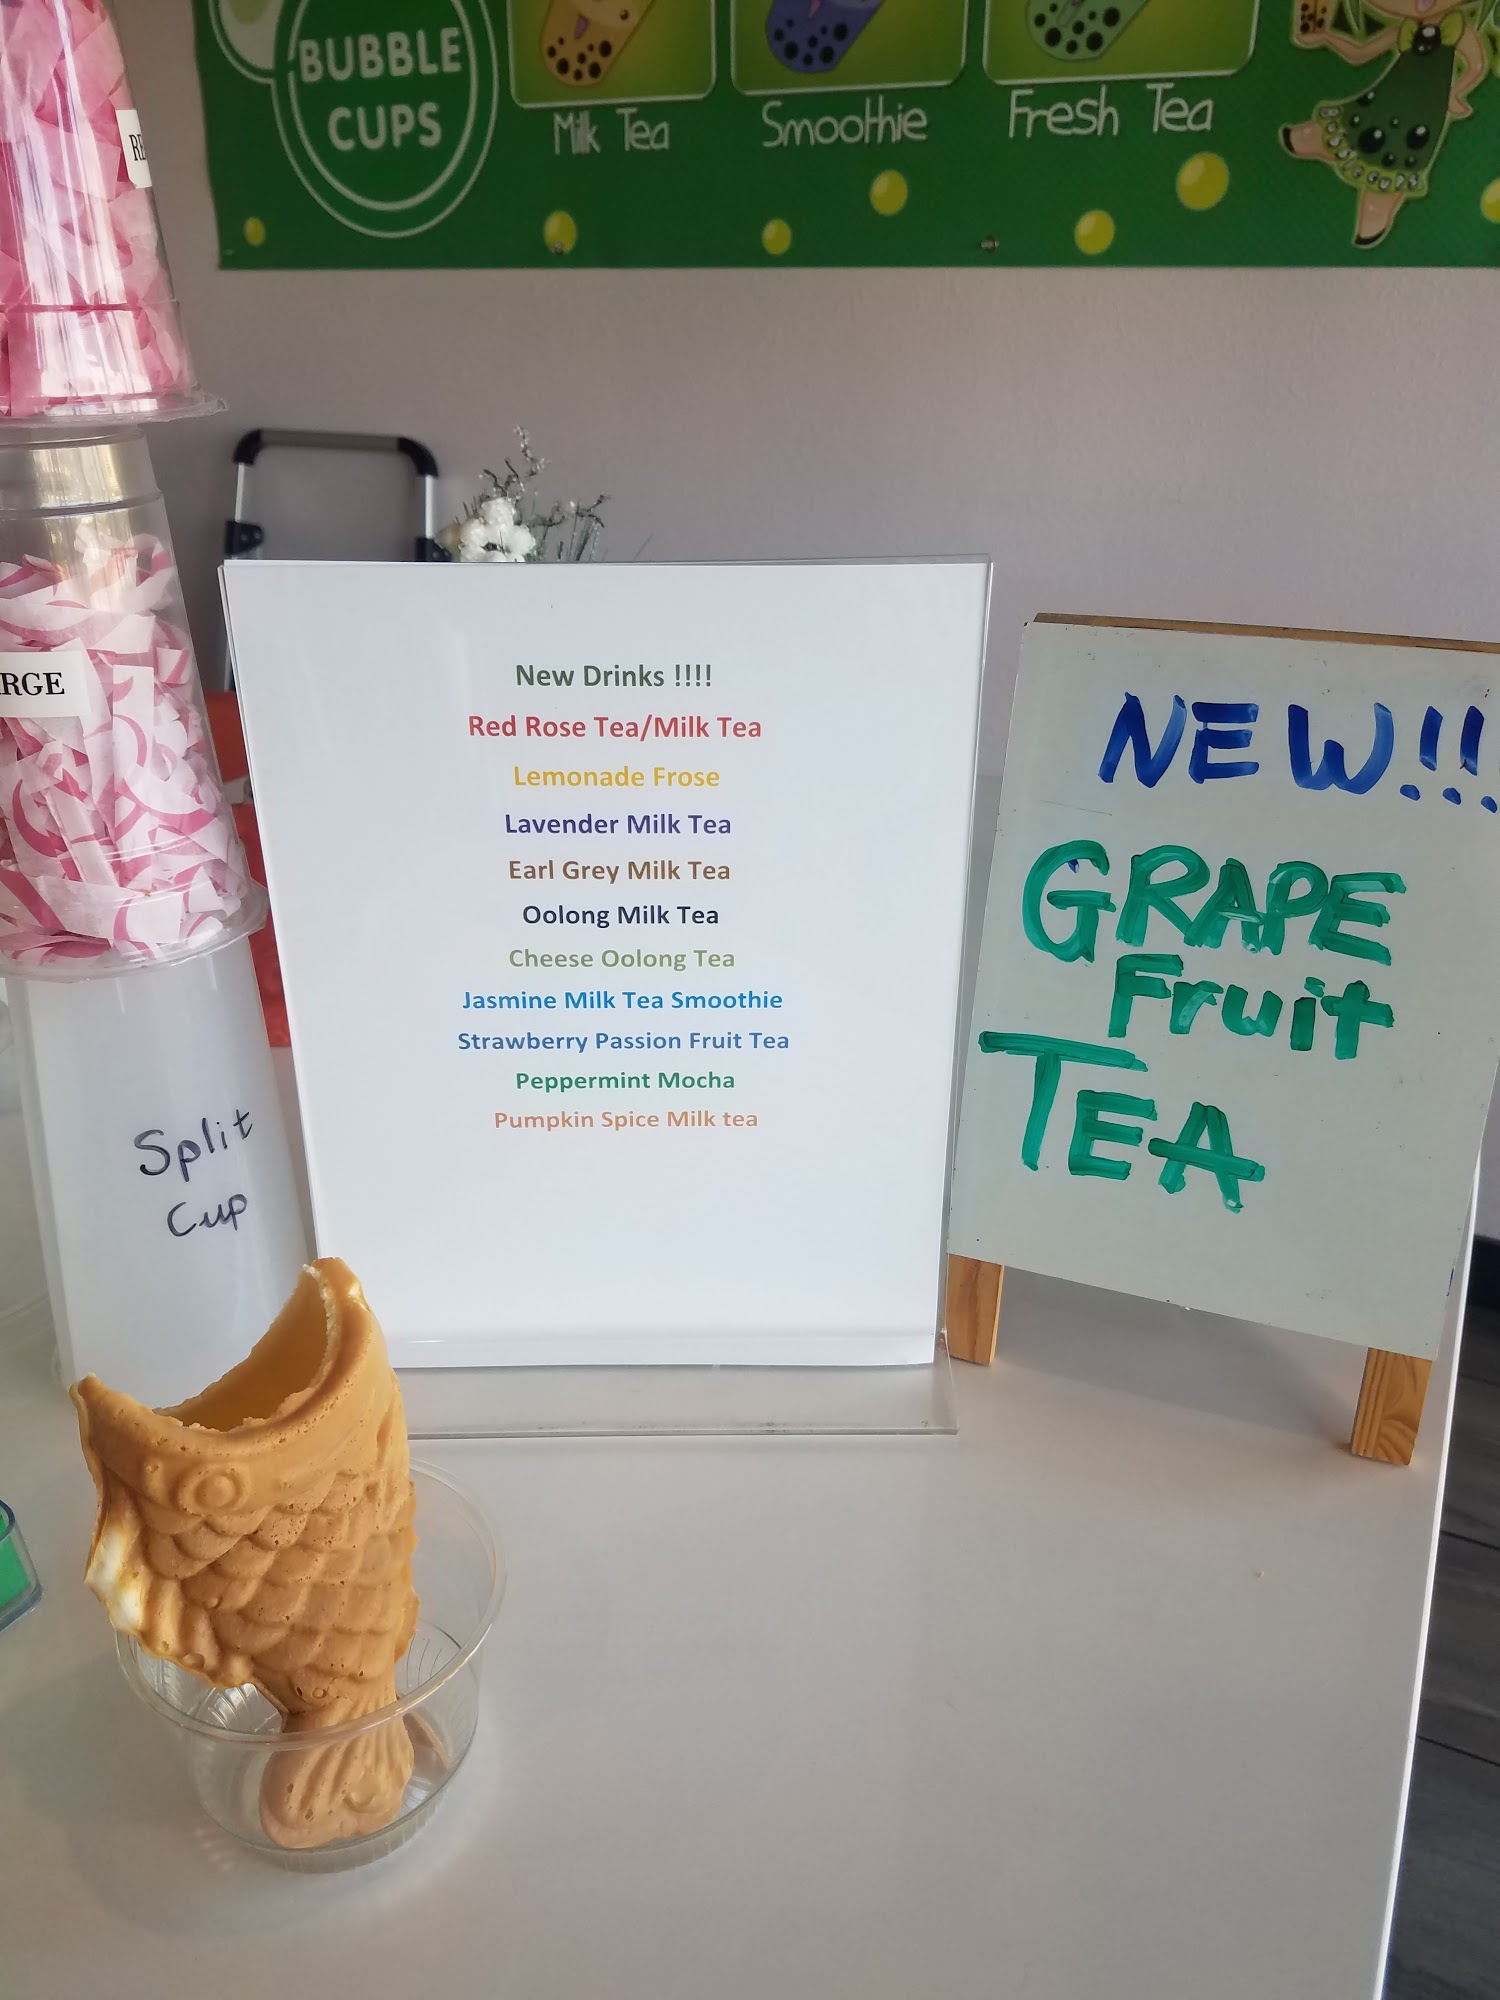 BUBBLE
CUPS
Milk Tea
Smoothie
Fresh Tea
BUBBLE CUPS
New Drinks !!!!
Red Rose Tea/Milk Tea
Lemonade Frose
Lavender Milk Tea
Earl Grey Milk Tea
Oolong Milk Tea
Cheese Oolong Tea
Jasmine Milk Tea Smoothie
Strawberry Passion Fruit Tea
Peppermint Mocha
Pumpkin Spice Milk tea
NEW!!!
GRAPE
Fruit
TEA
RE
RGE
Split
Cup